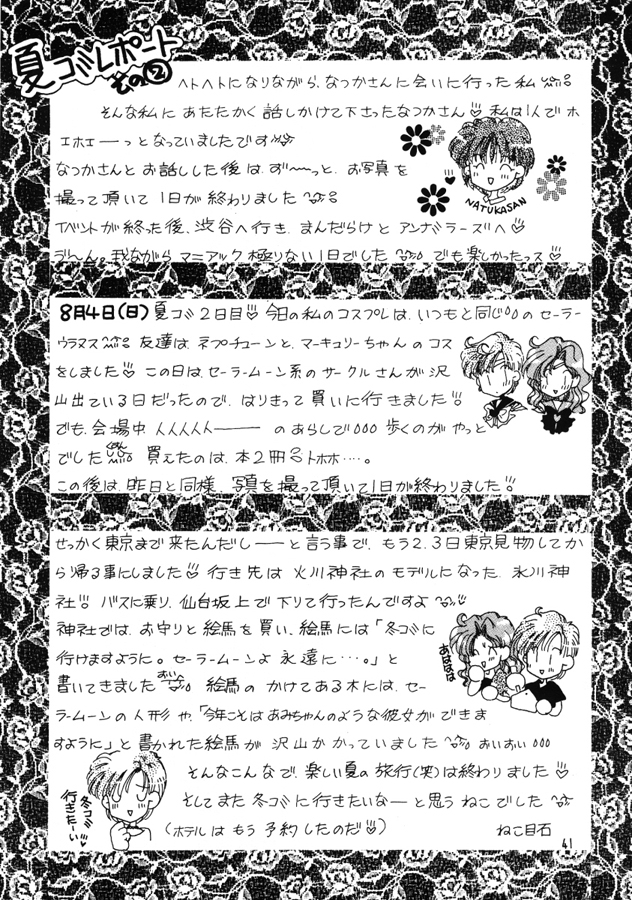 夏コミレポート
その②
ヘトヘトになりながら、なつかさんに会いに行った私
そんな私に あたたかく 話しかけて下さったなつかさん♡ 私は1人で ホ
エホエーーっとなっていましたです
なつかさんと お話しした後は、ず〜〜っと、お写真を
撮って頂いて 1日が終わりました
NATUKASAN
イベントが終った後、渋谷へ行き、まんだらけと アンナミラーズへ♡
う〜ん。我ながら マニアック極りない1日でした でも楽しかったっス♡
8月4日(日) 夏コミ2日目♡ 今日の私のコスプレは、いつもと同じ○○のセーラー
ウラヌス 友達は、ネプチューンと、マーキュリーちゃんのコス
をしました♡ この日は、セーラームーン系のサークルさんが沢
山出ている日だったので、はりきって買いに行きました!!
でも、会場中 人人人人人ーーー のあらしで○○○ 歩くのがやっと
でした 買えたのは、本2冊 トホホ‥‥。
この後は、昨日と同様、写真を撮って頂いて1日が終わりました!!
せっかく東京まで来たんだしーーと言う事で、もう2、3日東京見物してか
ら帰る事にしました♡ 行き先は 火川神社のモデルになった、氷川神
社!! バスに乗り、仙台坂上で下りて行ったんですよ
神社では、お守りと絵馬を買い、絵馬には「冬コミに
行けますように。セーラームーンよ 永遠に‥‥。」と
書いてきました 絵馬の かけてある木には、セー
ラームーンの人形や、「今年こそはあみちゃんのような彼女ができま
すように」と書かれた絵馬が 沢山かかっていました おいおい○○○
そんなこんなで、楽しい夏の旅行(笑)は終わりました♡
そしてまた冬コミに行きたいなーと思う ねこでした
(ホテルは もう予約したのだ♡)
冬コミ
行きたーい♡
ねこ目石
41